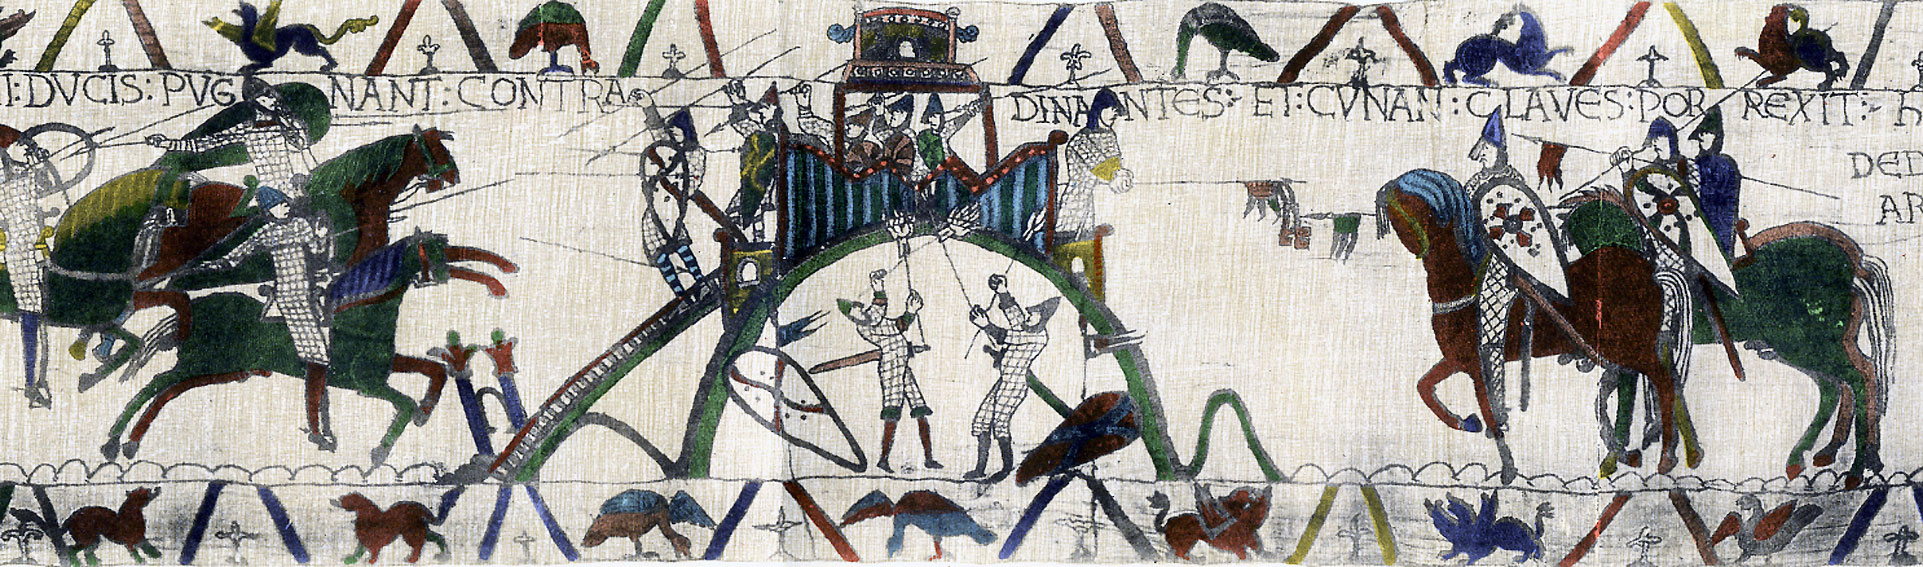 I: DVCIS: PVGNANT: CONTRA DINANTES:- ET: CVNAN: CLAVES: POR REXIT:- h
DED
AR